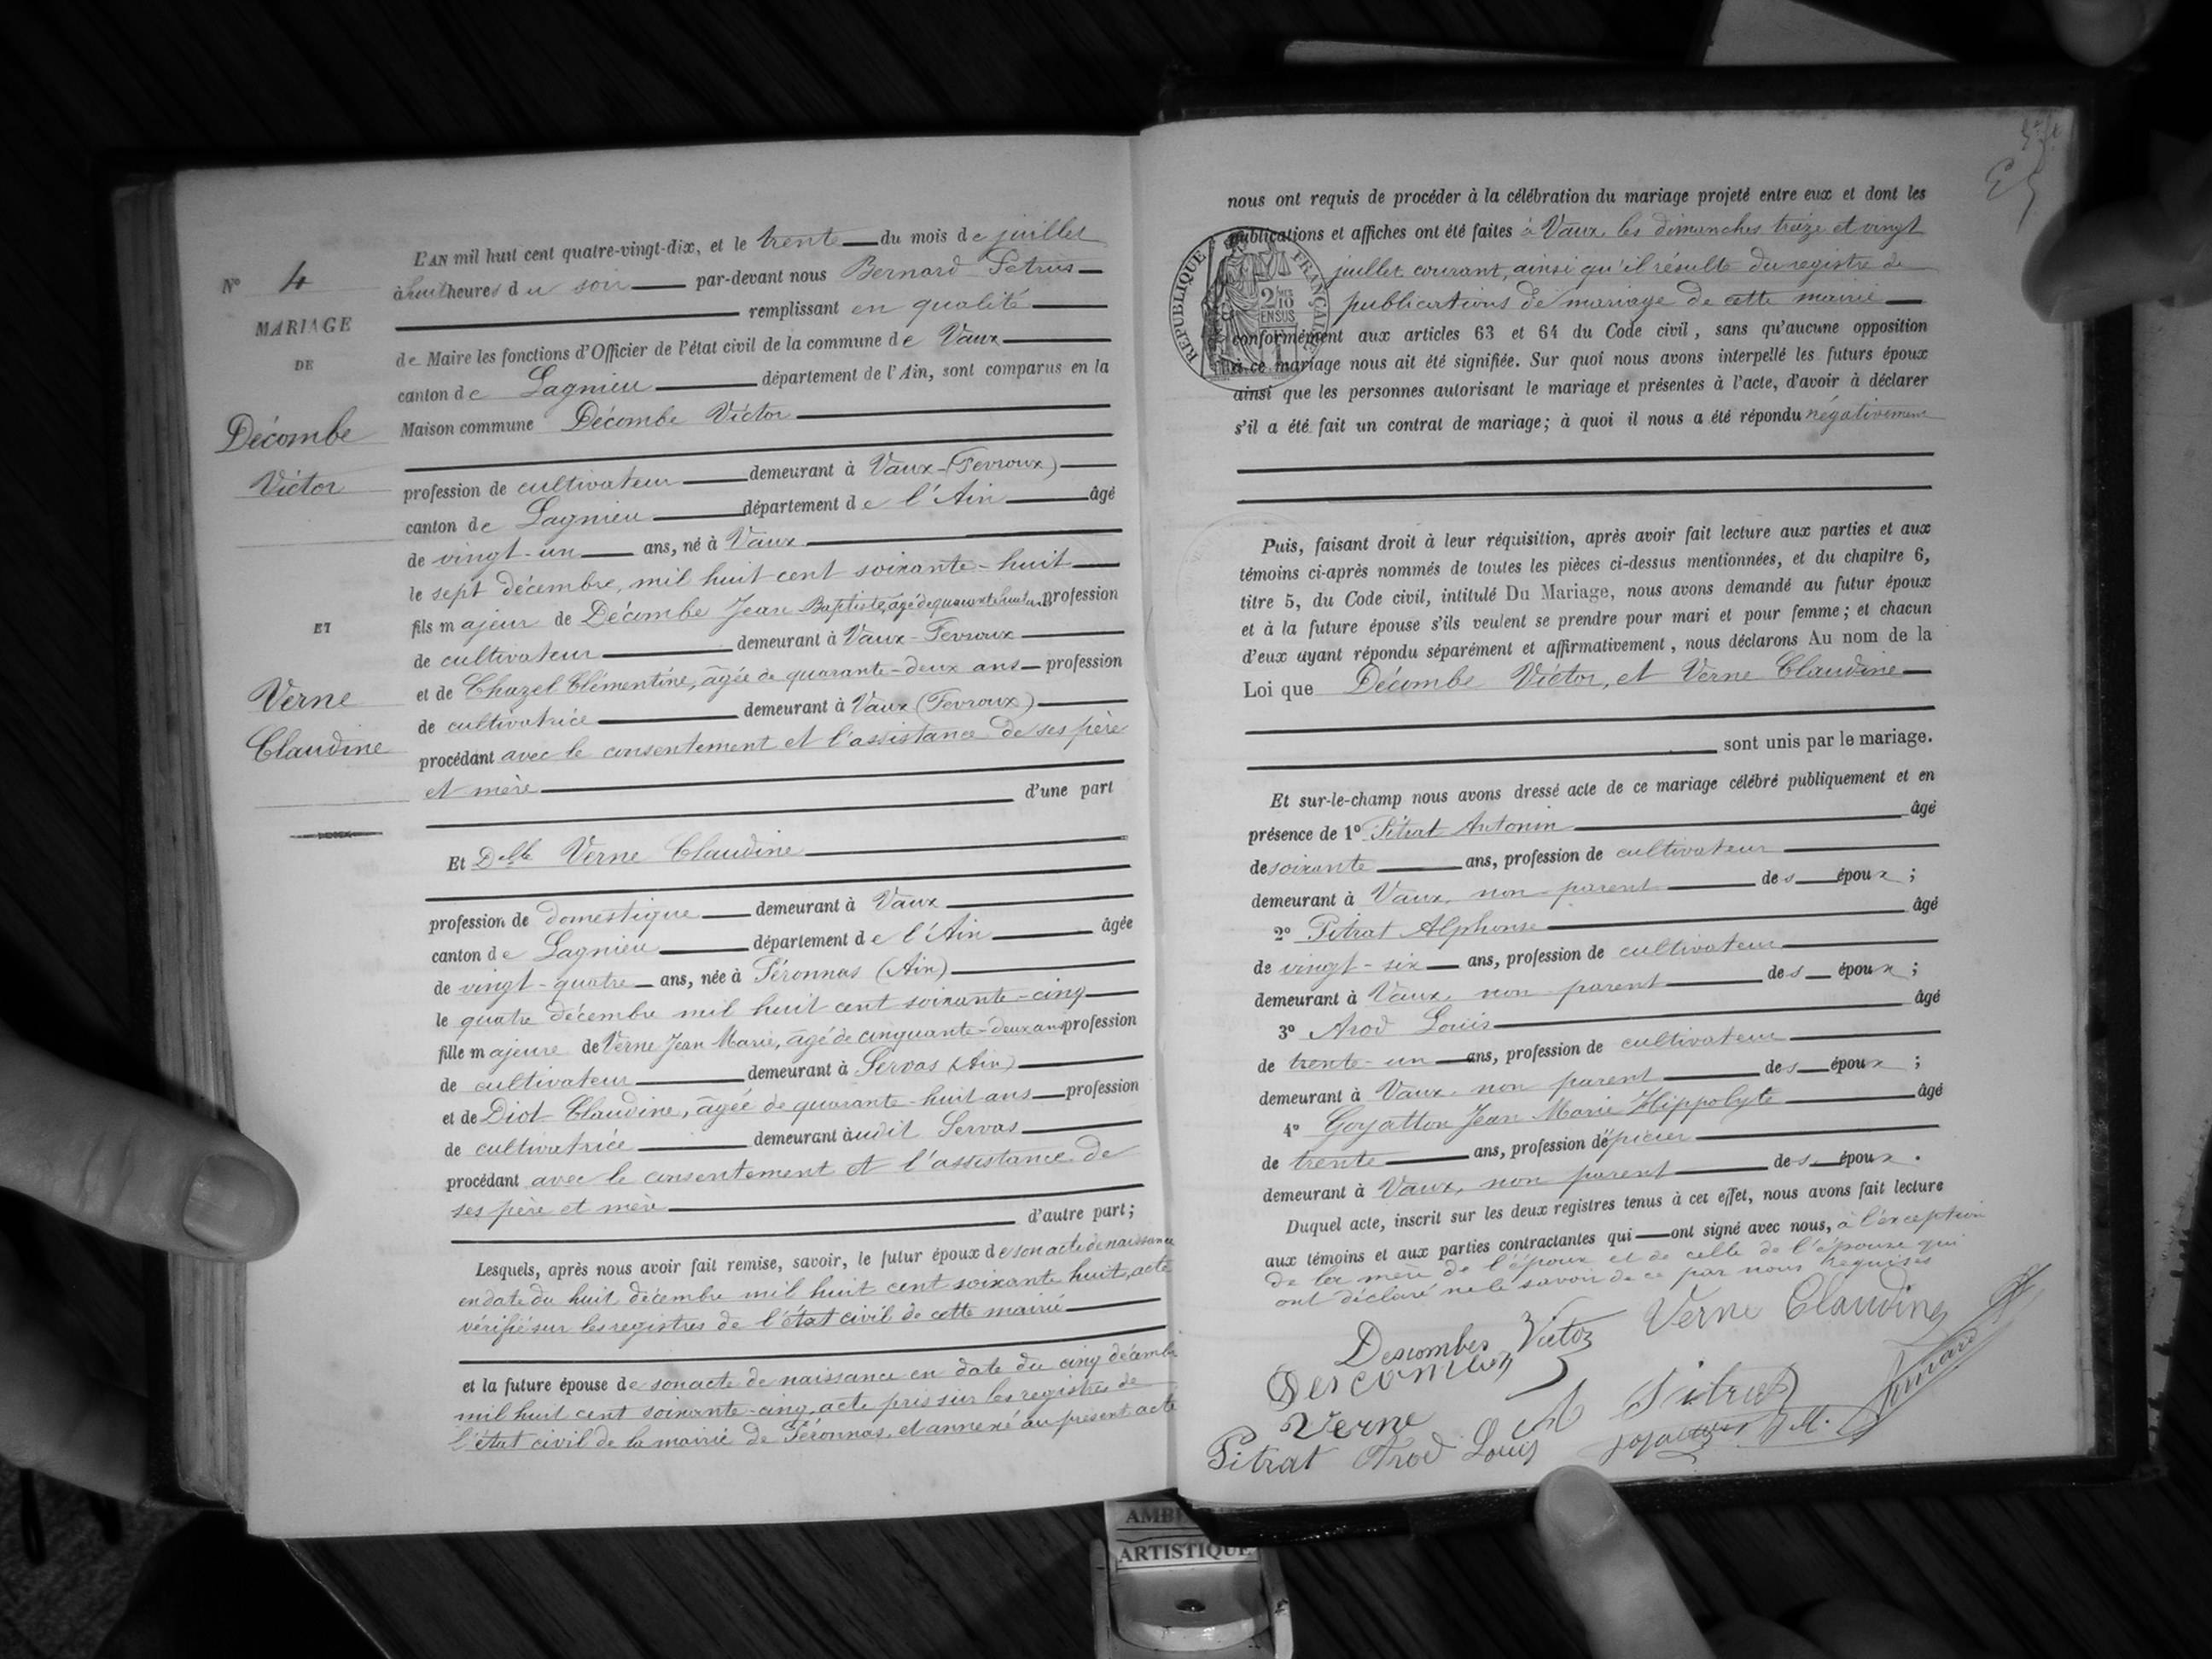 N° 4
MARIAGE
DE
Décombe
Victor
ET
Verne
Claudine
L'AN mil huit cent quatre-vingt-dix, et le trente du mois de juillet
à huit heures du soir par-devant nous Bernard Petrus
remplissant en qualité
de Maire les fonctions d'Officier de l'état civil de la commune de Vaux
canton de Lagnieu département de l'Ain, sont comparus en la
Maison commune Décombe Victor
profession de cultivateur demeurant à Vaux-(Fevroux)
canton de Lagnieu département de l'Ain âgé
de vingt-un ans, né à Vaux
le sept décembre, mil huit cent soixante-huit
fils majeur de Décombe Jean Baptiste, âgé de quarante huit ans profession
de cultivateur demeurant à Vaux-Fevroux
et de Chazel Clémentine, âgée de quarante-deux ans profession
de cultivatrice demeurant à Vaux (Fevroux)
procédant avec le consentement et l'assistance de ses père
et mère
d'une part
Et Delle Verne Claudine
profession de domestique demeurant à Vaux
canton de Lagnieu département de l'Ain âgée
de vingt-quatre ans, née à Péronnas (Ain)
le quatre décembre mil huit cent soixante-cinq
fille majeure de Verne Jean Marie, âgé de cinquante-deux ans profession
de cultivateur demeurant à Servas (Ain)
et de Diot Claudine, âgée de quarante-huit ans profession
de cultivatrice demeurant audit Servas
procédant avec le consentement et l'assistance de
ses père et mère
d'autre part;
Lesquels, après nous avoir fait remise, savoir, le futur époux de son acte de naissance
en date du huit décembre mil huit cent soixante huit, acte
vérifié sur les registres de l'état civil de cette mairie
et la future épouse de son acte de naissance en date du cinq décembre
mil huit cent soixante-cinq, acte pris sur les registres de
l'état civil de la mairie de Péronnas, et annexé au présent acte
nous ont requis de procéder à la célébration du mariage projeté entre eux et dont les
publications et affiches ont été faites à Vaux les dimanches treize et vingt
juillet courant, ainsi qu'il résulte du registre de
publications de mariage de cette mairie
conformément aux articles 63 et 64 du Code civil, sans qu'aucune opposition
à ce mariage nous ait été signifiée. Sur quoi nous avons interpellé les futurs époux
ainsi que les personnes autorisant le mariage et présentes à l'acte, d'avoir à déclarer
s'il a été fait un contrat de mariage; à quoi il nous a été répondu négativement
RÉPUBLIQUE FRANÇAISE
2/10 EN SUS
Puis, faisant droit à leur réquisition, après avoir fait lecture aux parties et aux
témoins ci-après nommés de toutes les pièces ci-dessus mentionnées, et du chapitre 6,
titre 5, du Code civil, intitulé Du Mariage, nous avons demandé au futur époux
et à la future épouse s'ils veulent se prendre pour mari et pour femme; et chacun
d'eux ayant répondu séparément et affirmativement, nous déclarons Au nom de la
Loi que Décombe Victor, et Verne Claudine
sont unis par le mariage.
Et sur-le-champ nous avons dressé acte de ce mariage célébré publiquement et en
présence de 1° Pitrat Antonin âgé
de soixante ans, profession de cultivateur
demeurant à Vaux, non parent des époux;
2° Pitrat Alphonse âgé
de vingt-six ans, profession de cultivateur
demeurant à Vaux, non parent des époux;
3° Arod Louis âgé
de trente-un ans, profession de cultivateur
demeurant à Vaux, non parent des époux;
4° Goyatton Jean Marie Hippolyte âgé
de trente ans, profession d'épicier
demeurant à Vaux, non parent des époux.
Duquel acte, inscrit sur les deux registres tenus à cet effet, nous avons fait lecture
aux témoins et aux parties contractantes qui ont signé avec nous, à l'exception
de la mère de l'époux et de celle de l'épouse qui
ont déclaré ne le savoir de ce par nous requises
Descombes Victor Verne Claudine
Descombes
Verne A Pitrat
Pitrat Arod Louis
AMBI
ARTISTIQUE